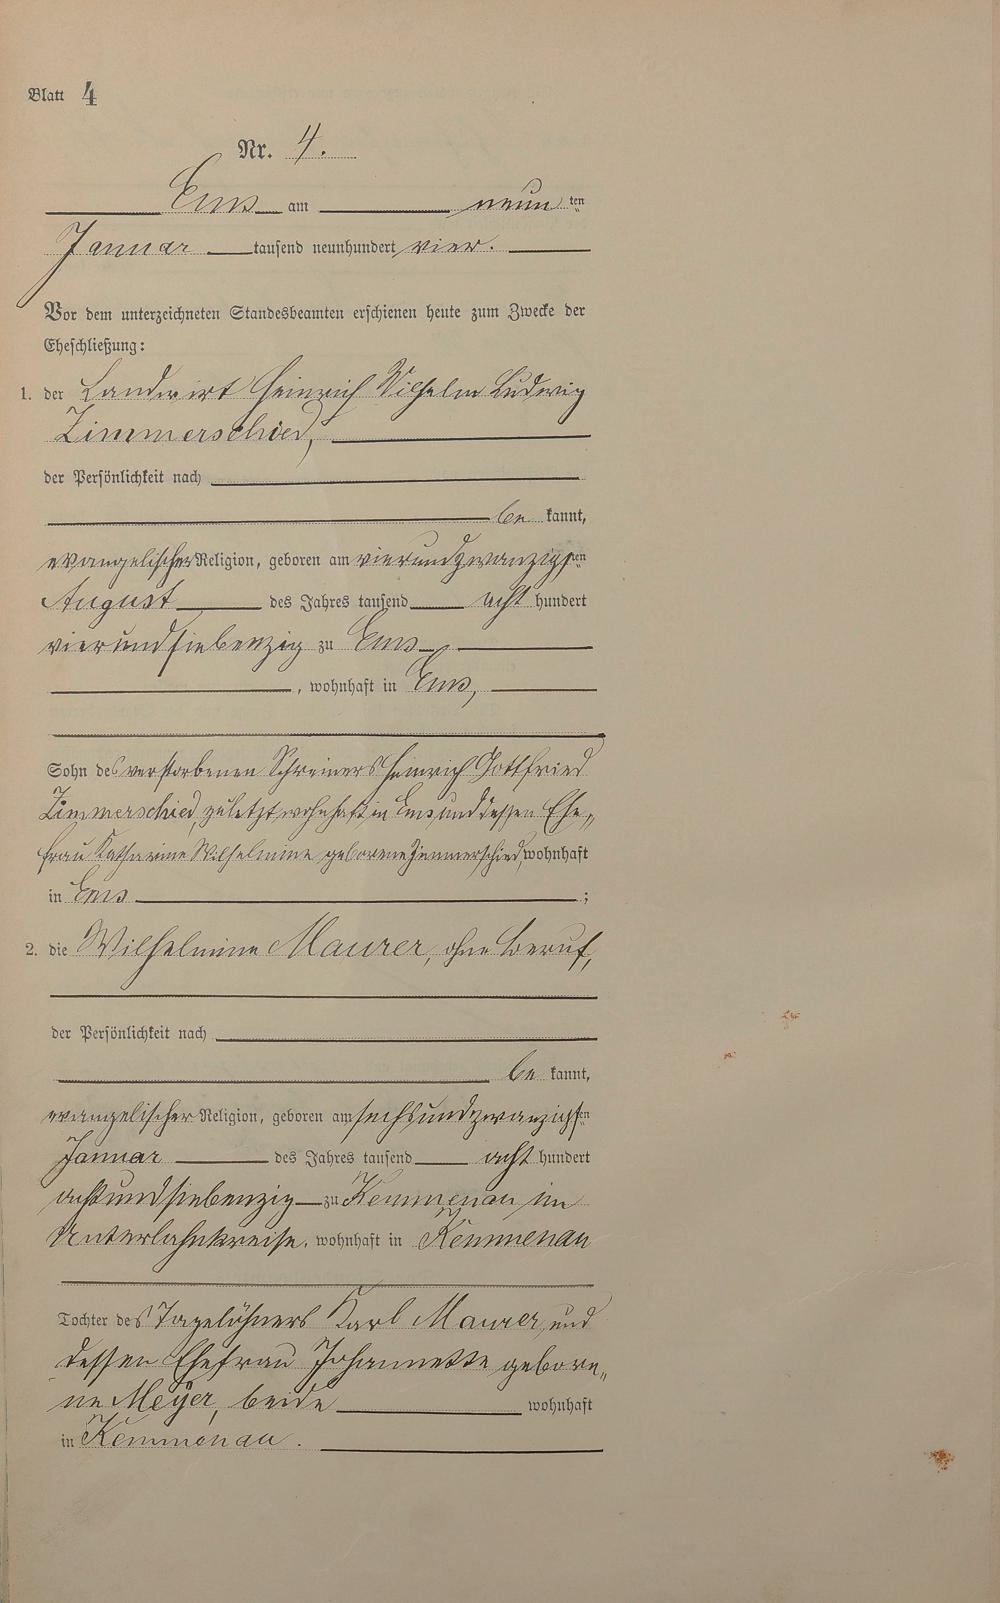 Blatt 4
Nr. 4.
Ems am neunten
Januar tausend neunhundert vier.
Vor dem unterzeichneten Standesbeamten erschienen heute zum Zwecke der
Eheschließung:
1. der Landwirt Heinrich Wilhelm Ludwig
Zimmerschied,
der Persönlichkeit nach
be kannt,
evangelischer Religion, geboren am vierundzwanzigsten
August des Jahres tausend acht hundert
vierundsiebenzig zu Ems
, wohnhaft in Ems,
Sohn des verstorbenen Schreiners Heinrich Gottfried
Zimmerschied, zuletzt wohnhaft in Ems, und dessen Ehe„
frau Katharine Wilhelmine geborene Zimmerschied, wohnhaft
in Ems ;
2. die Wilhelmine Maurer, ohne Beruf,
der Persönlichkeit nach
be kannt,
evangelischer Religion, geboren am sechsundzwanzigsten
Januar des Jahres tausend acht hundert
achtundsiebenzig zu Kemmenau im
Unterlahnkreise, wohnhaft in Kemmenau
Tochter des Tagelöhners Karl Maurer und
dessen Ehefrau Johannette gebore„
ne Meyer, beide wohnhaft
in Kemmenau.